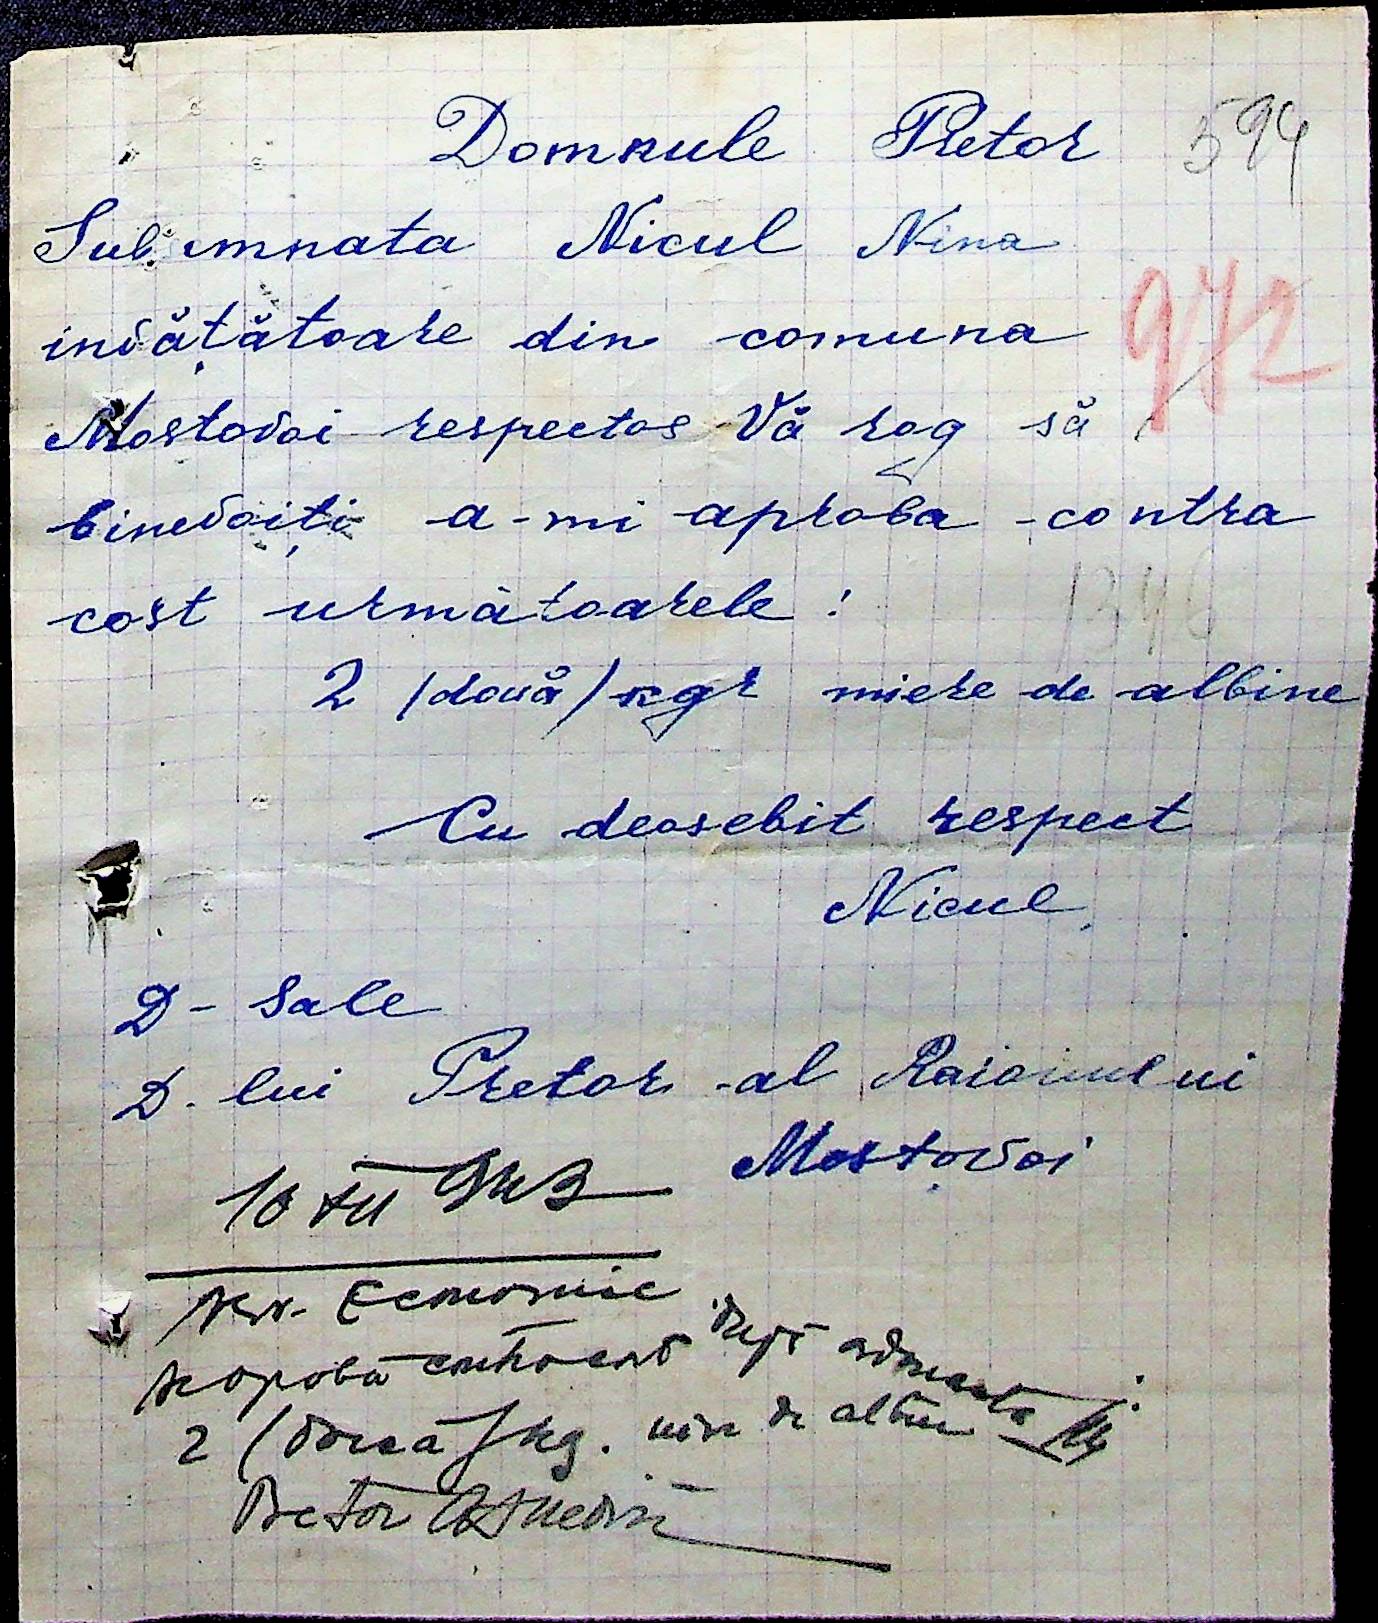 Domnule Pretor 594
Subsemnata Nicul Nina
învățătoare din comuna
972
Mostovoi respectos Vă rog să
binevoiți a-mi aproba contra
cost următoarele:
1346
2 /două/ kgr miere de albine
Cu deosebit respect
Nicul
D-Sale
D. lui Pretor al Raionului
Mostovoi
10 XII 943
Economic
Se aprobă contra cost
2 (două) kg. de albine
Pretor